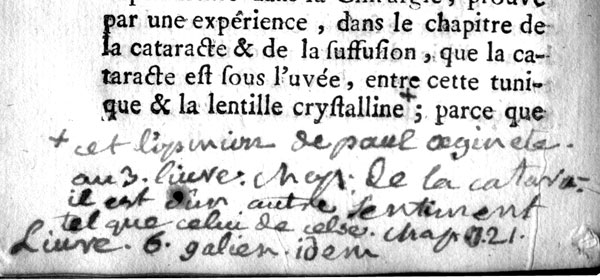 par une expérience, dans le chapitre de
la cataracte & de la ſuffuſion, que la ca-
taracte eſt ſous l'uvée, entre cette tuni-
que & la lentille cryſtalline + ; parce que
+ cet l'opinion de paul œginete.
au 3. liure. chap: de la catara-
il est d'un autre sentiment
tel que celui de celse. chap. 21.
Liure. 6. galien. idem